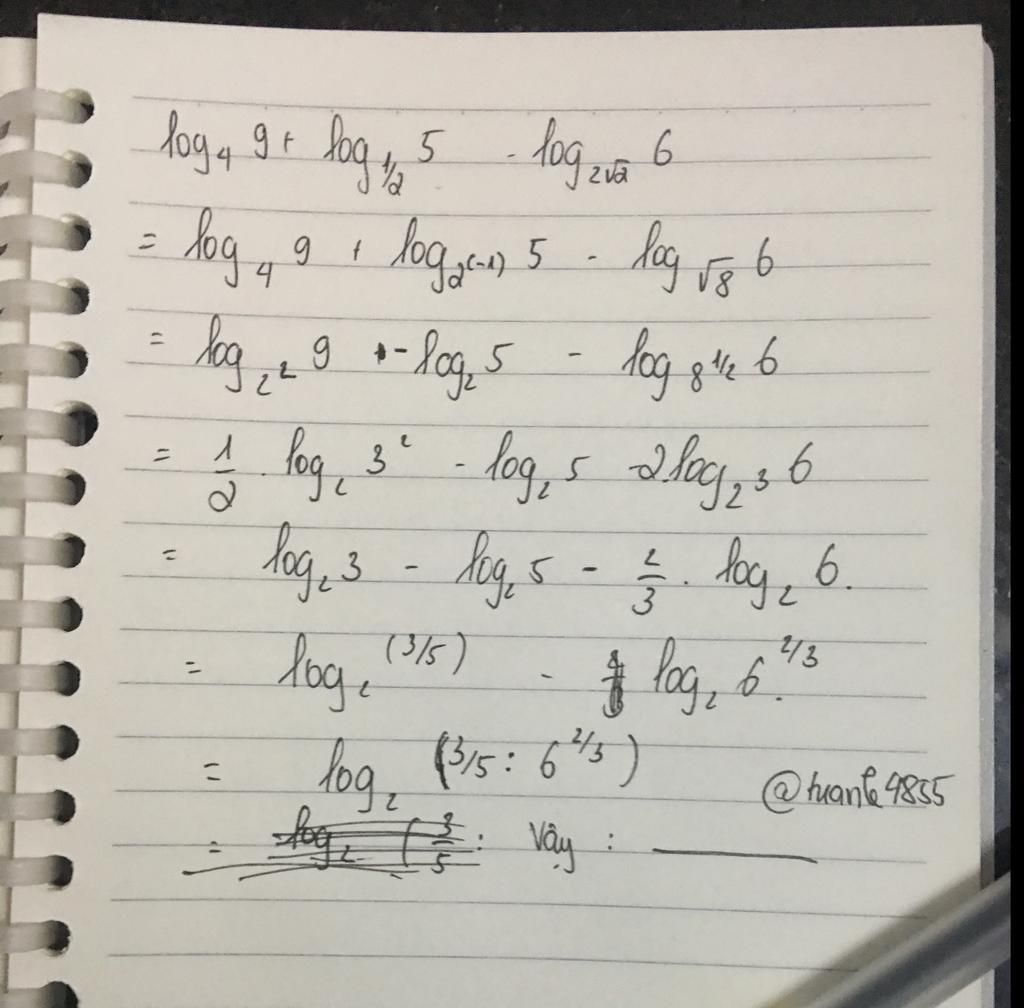 log₄ 9 + log_{1/2} 5 - log_{2√2} 6
= log₄ 9 + log_{2^(-1)} 5 - log_{√8} 6
= log_{2²} 9 - log₂ 5 - log_{8^{1/2}} 6
= 1/2 . log₂ 3² - log₂ 5 - 2.log_{2³} 6
= log₂ 3 - log₂ 5 - 2/3 . log₂ 6.
= log₂ (3/5) - log₂ 6^{2/3}.
= log₂ (3/5 : 6^{2/3})
@tuanle4835
= log₂ (3/5 : Vậy :